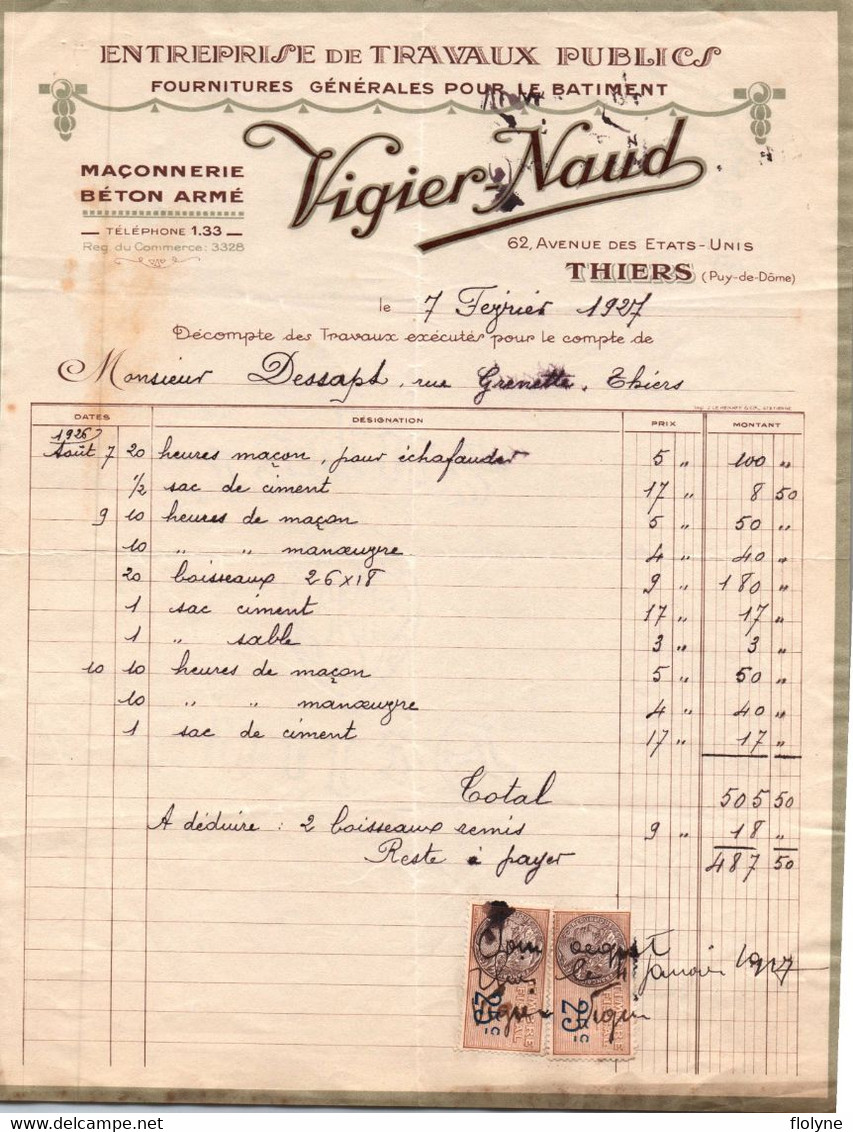 ENTREPRISE DE TRAVAUX PUBLICS
FOURNITURES GÉNÉRALES POUR LE BATIMENT
Vigier-Naud
MAÇONNERIE
BÉTON ARMÉ
TÉLÉPHONE 1.33
Reg. du Commerce: 3328
62, AVENUE DES ETATS-UNIS
THIERS (Puy-de-Dôme)
le 7 Février 1927
Décompte des Travaux exécutés pour le compte de
Monsieur Dessapt, rue Grenette. Thiers
DATES DÉSIGNATION PRIX MONTANT
1926
Août 7 20 heures maçon, pour échafauder 5 " 100 "
1/2 sac de ciment 17 " 8 50
9 10 heures de maçon 5 " 50 "
10 " " manœuvre 4 " 40 "
20 boisseaux 26x18 9 " 180 "
1 sac ciment 17 " 17 "
1 " sable 3 " 3 "
10 10 heures de maçon 5 " 50 "
10 " " manœuvre 4 " 40 "
1 sac de ciment 17 " 17 "
Total 505 50
A déduire : 2 boisseaux remis 9 " 18 "
Reste à payer 487 50
Pour acquit
le 4 Janvier 1927
Vigier
25 c
25 c
flolyne